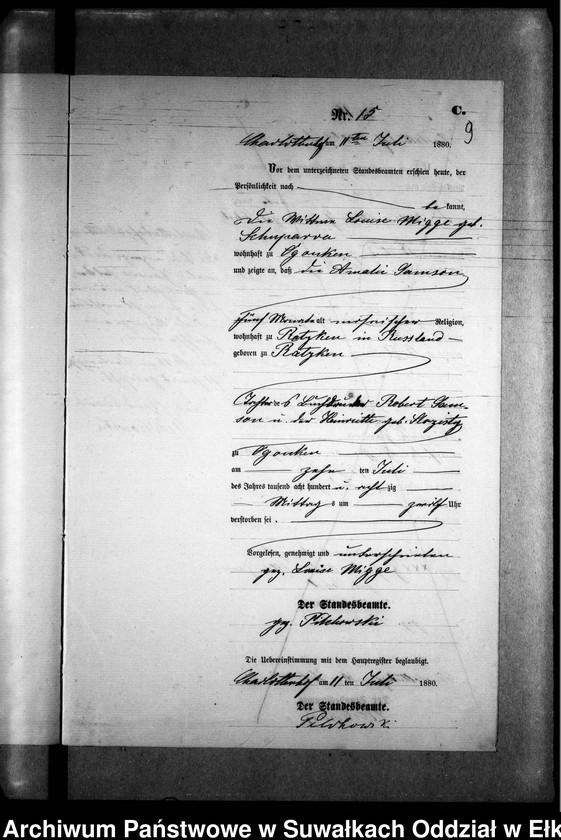 C.
Nr. 15
9
Charlottenhof am 11ten Juli 1880.
Vor dem unterzeichneten Standesbeamten erschien heute, der
Persönlichkeit nach
bekannt,
die Wittwe Louise Migge geb.
wohnhaft zu Ogonken
und zeigte an, daß die Amalie Samson
fünf Monate alt mosaischer Religion,
wohnhaft zu Ratzken in Russland
geboren zu Ratzken
Tochter des Robert Sam-
son u. der Henriette geb.
zu Ogonken
am zehn ten Juli
des Jahres tausend acht hundert u. acht zig
Mittag s um zwölf Uhr
verstorben sei.
Vorgelesen, genehmigt und unterschrieben
gez. Louise Migge
Der Standesbeamte.
gez.
Die Uebereinstimmung mit dem Hauptregister beglaubigt.
Charlottenhof am 11 ten Juli 1880.
Der Standesbeamte.
Archiwum Państwowe w Suwałkach Oddział w Ełk